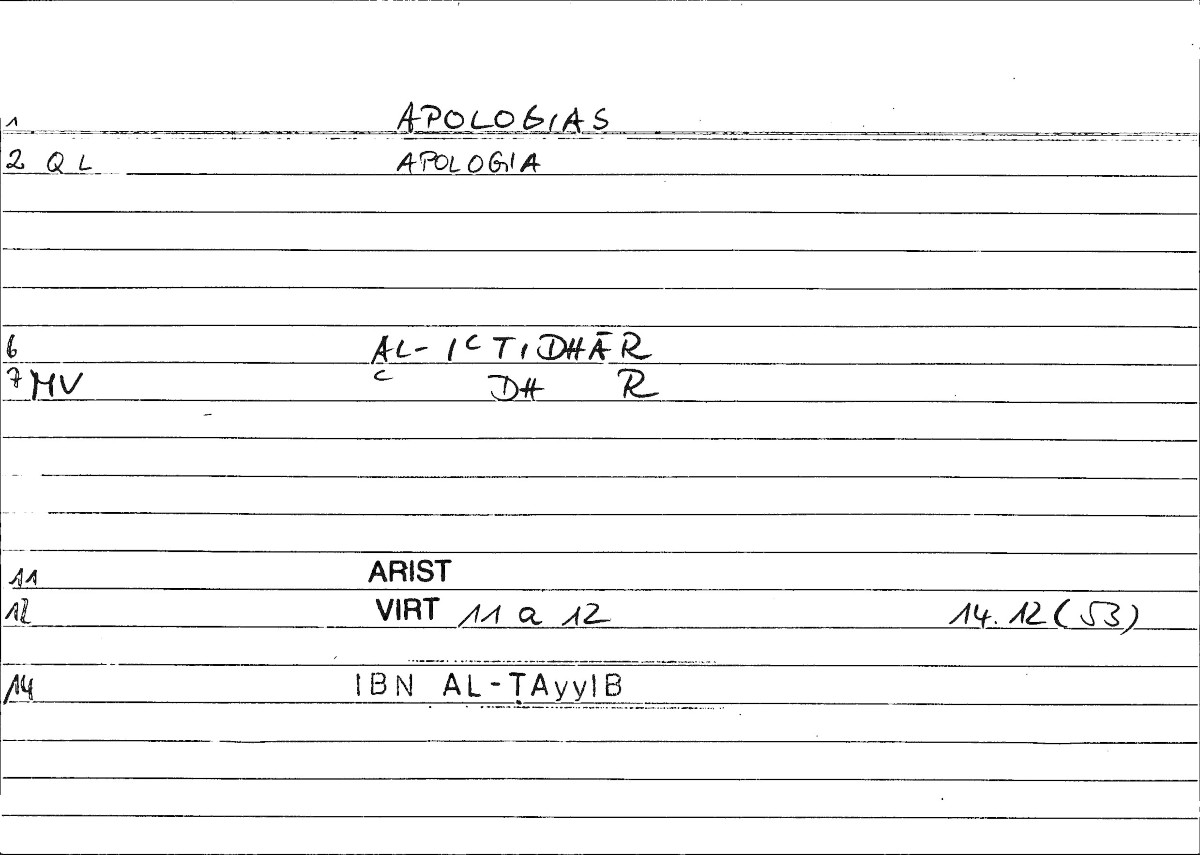 1 APOLOGIAS
2 Q L APOLOGIA
6 AL-IʿTIDHĀR
7 MV ʿ DH R
11 ARIST
12 VIRT 11 a 12 14.12 (53)
14 IBN AL-ṬAyyIB